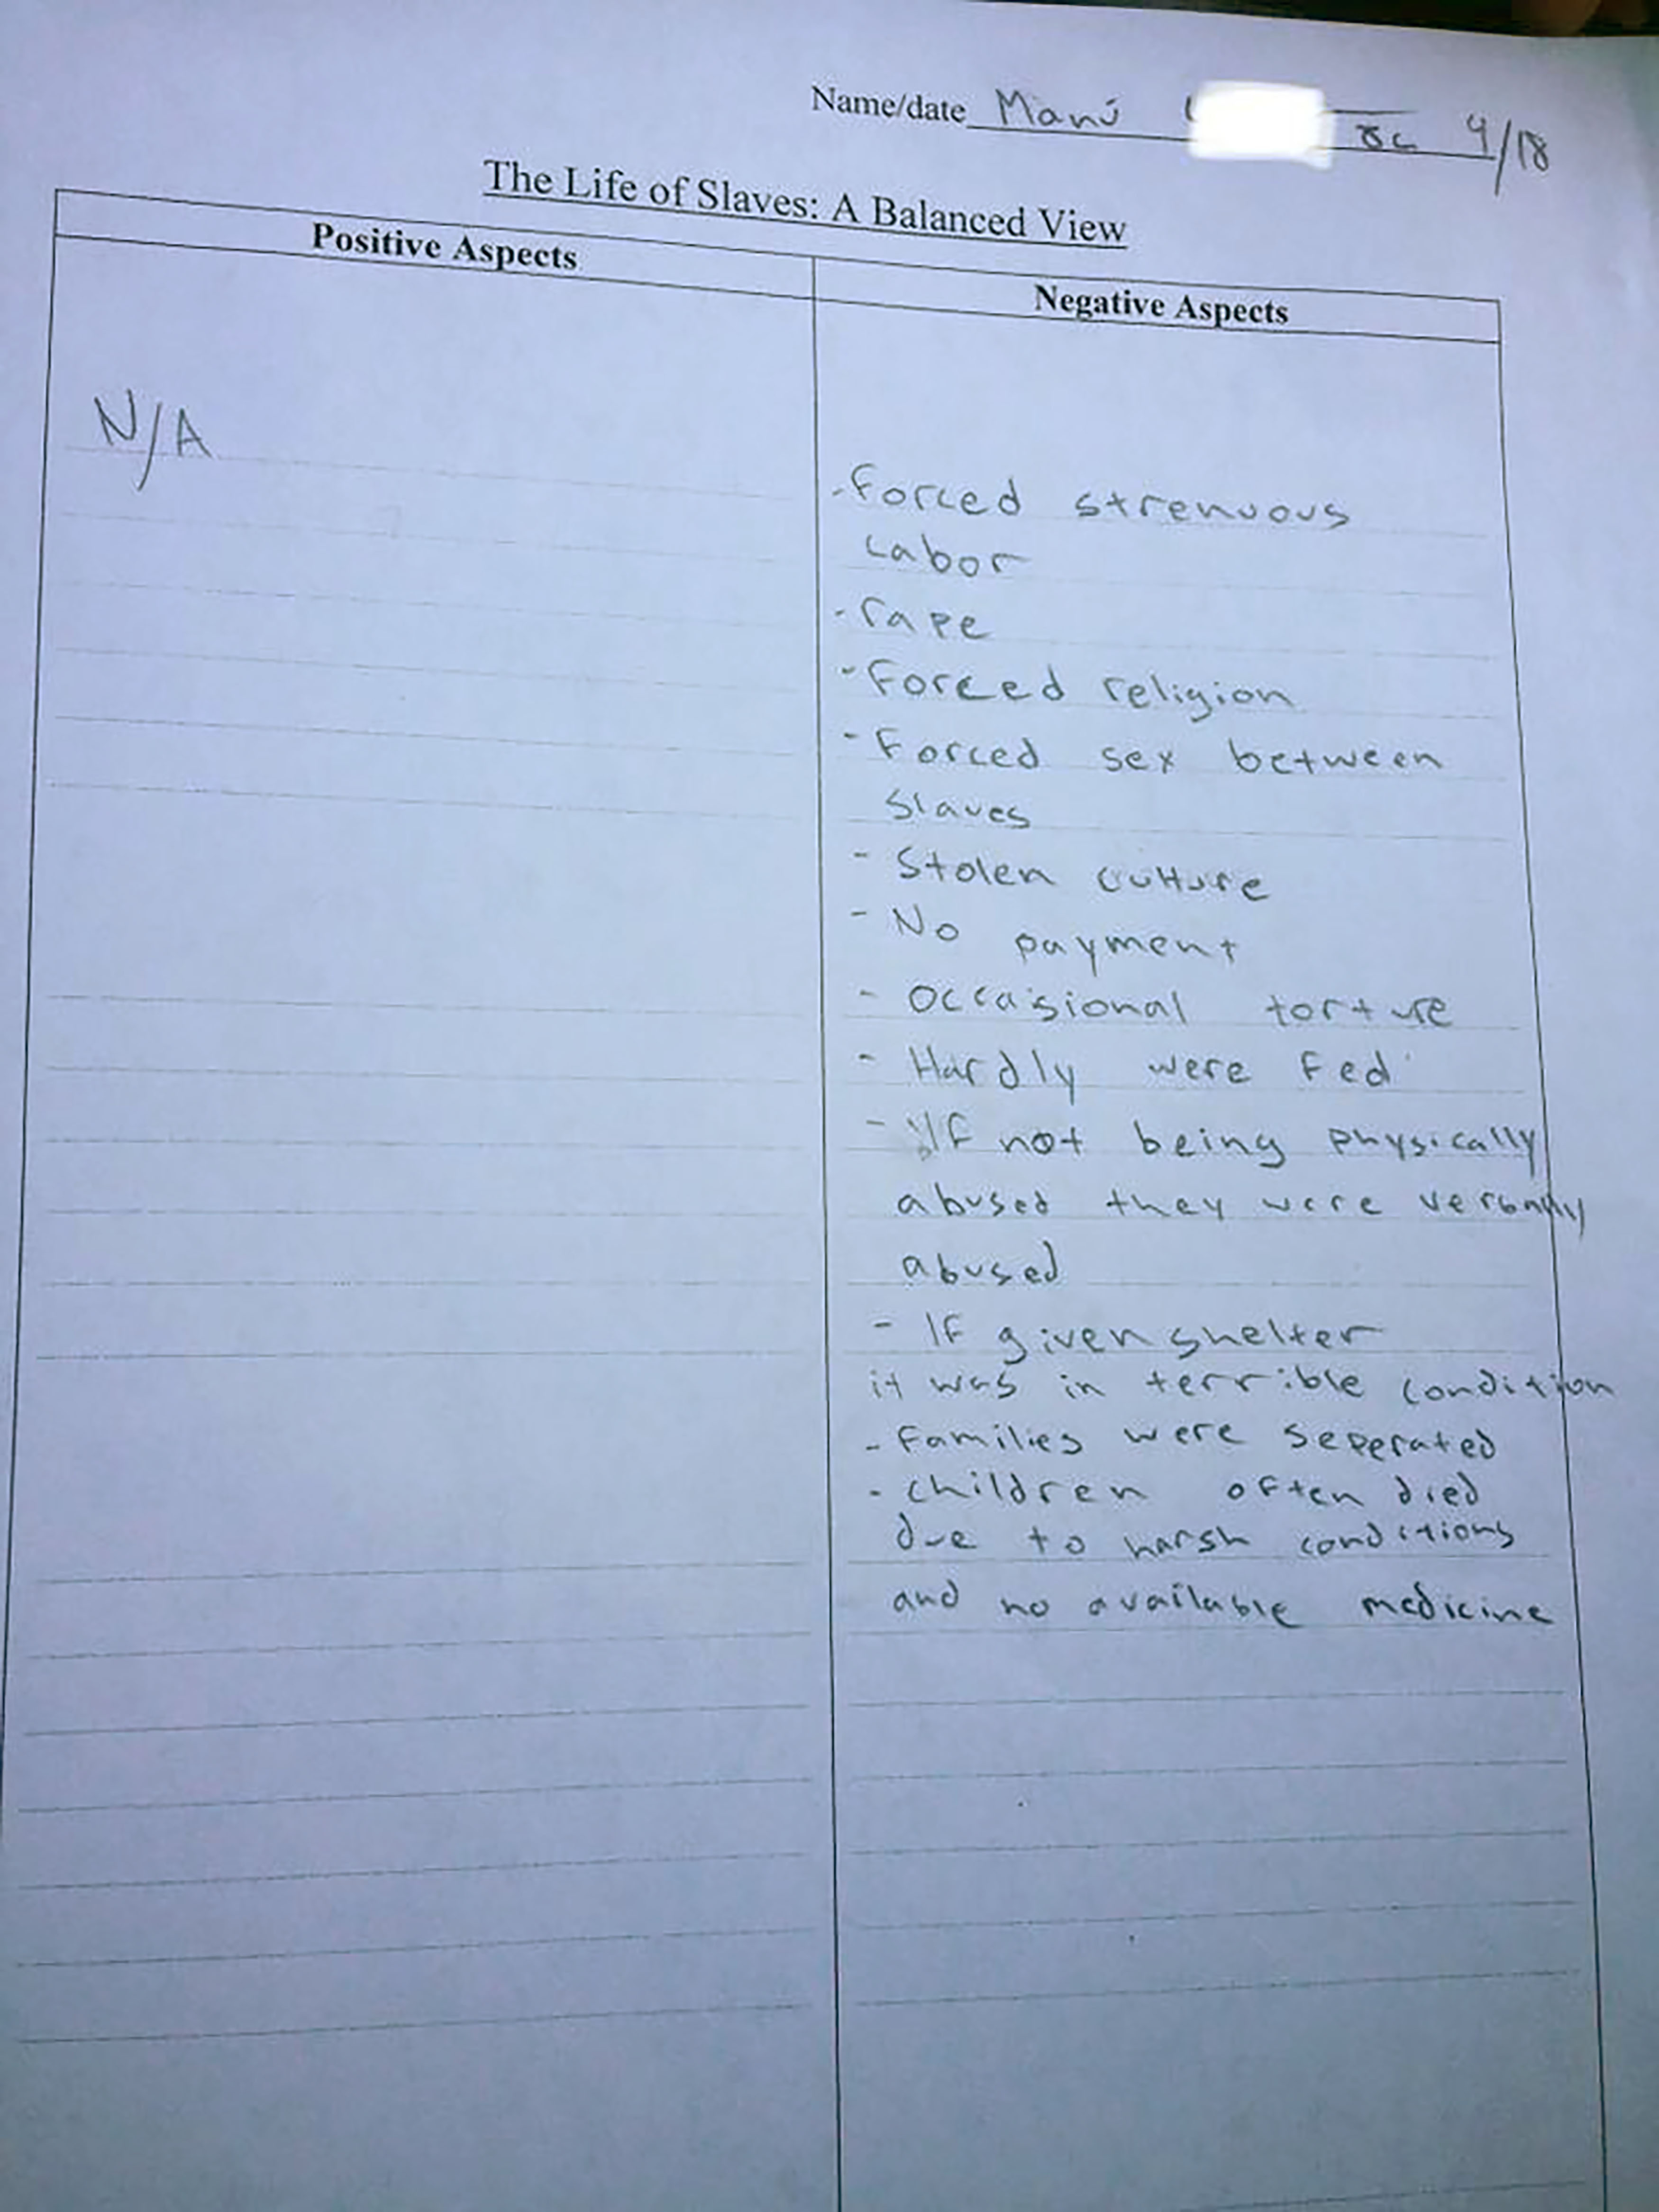 Name/date Manú 8c 4/18
The Life of Slaves: A Balanced View
Positive Aspects
Negative Aspects
N/A
-Forced strenuous
Labor
-rape
-Forced religion
-Forced sex between
slaves
- Stolen culture
- No payment
- Occasional torture
- Hardly were fed
- If not being physically
abused they were verbally
abused
- If given shelter
it was in terrible condition
- Families were seperated
- children often died
due to harsh conditions
and no available medicine